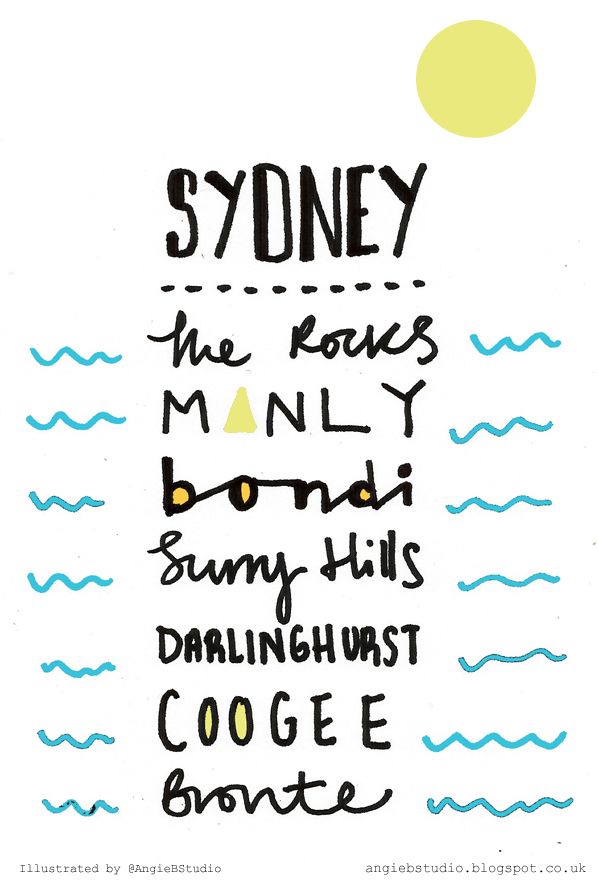 SYDNEY
The Rocks
MANLY
bondi
Surry Hills
DARLINGHURST
COOGEE
Bronte
Illustrated by @AngieBStudio
angiebstudio.blogspot.co.uk